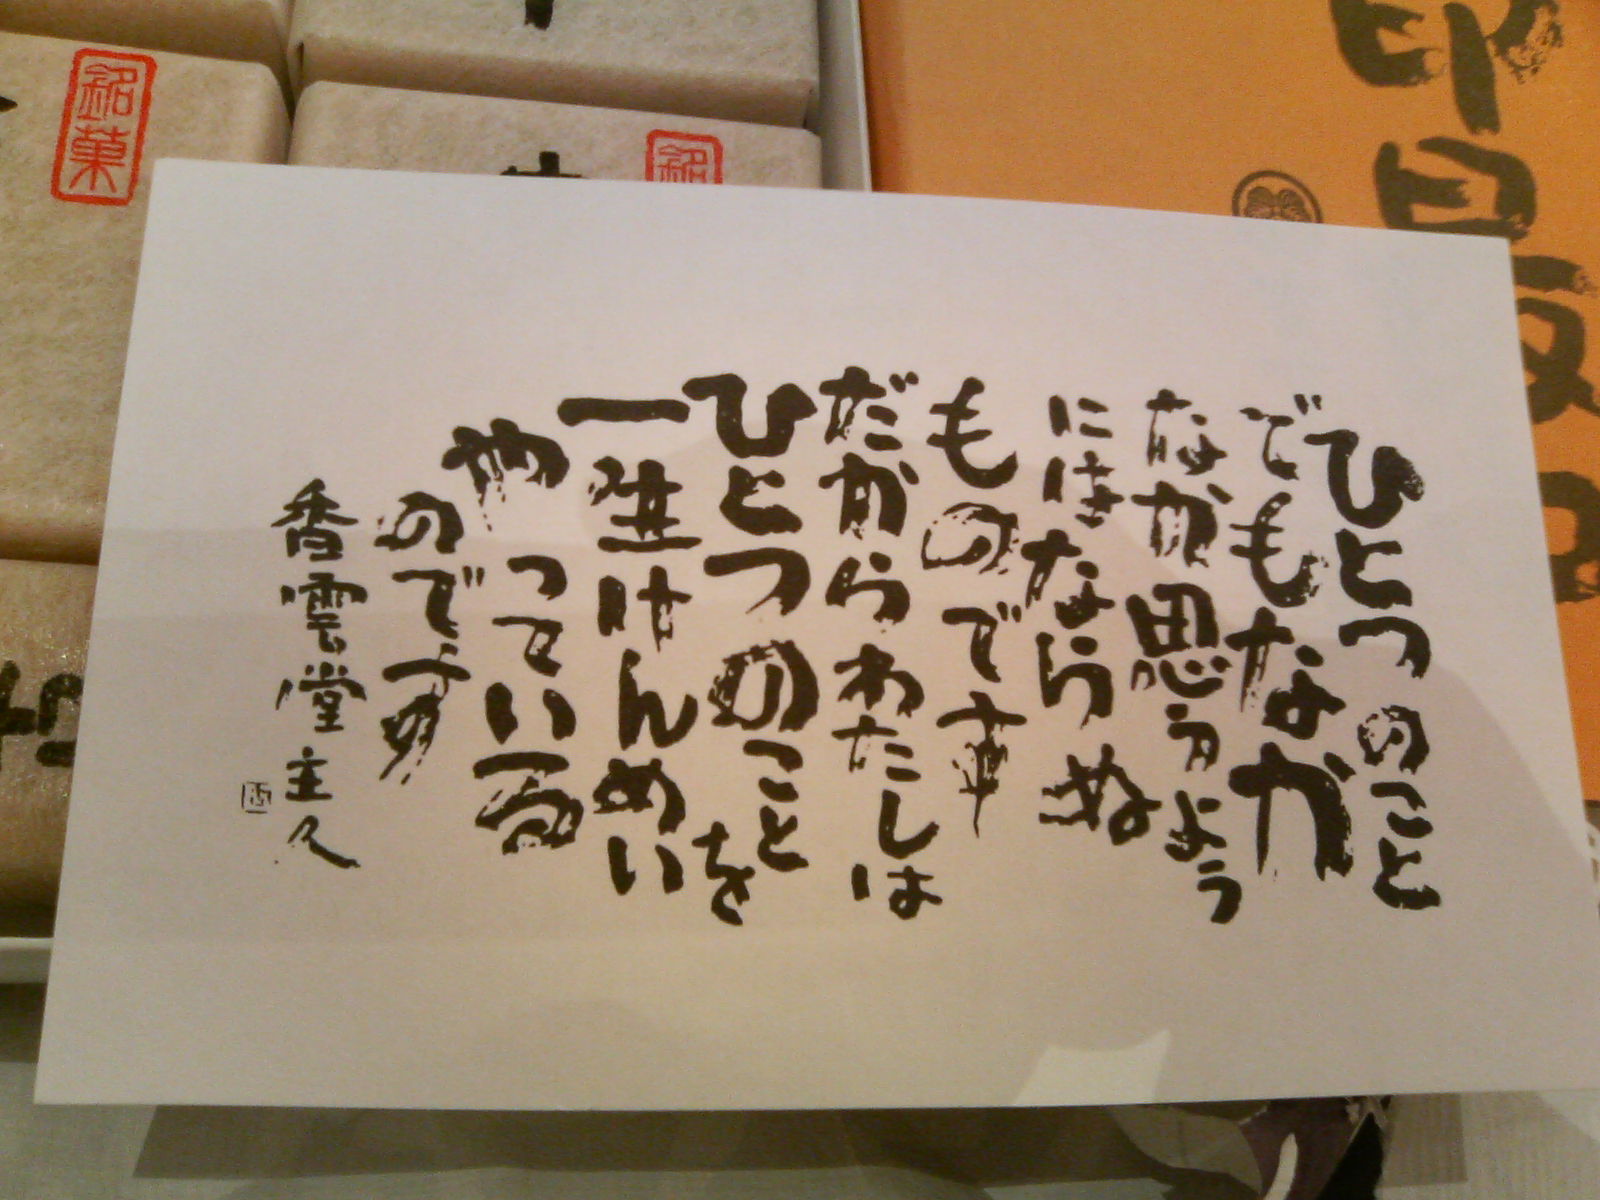 ひとつのこと
でもなかなか
なか思うよう
にはならぬ
ものです
だからわたしは
ひとつのことを
一生けんめい
やっている
のです
香雲堂主人
銘菓
銘